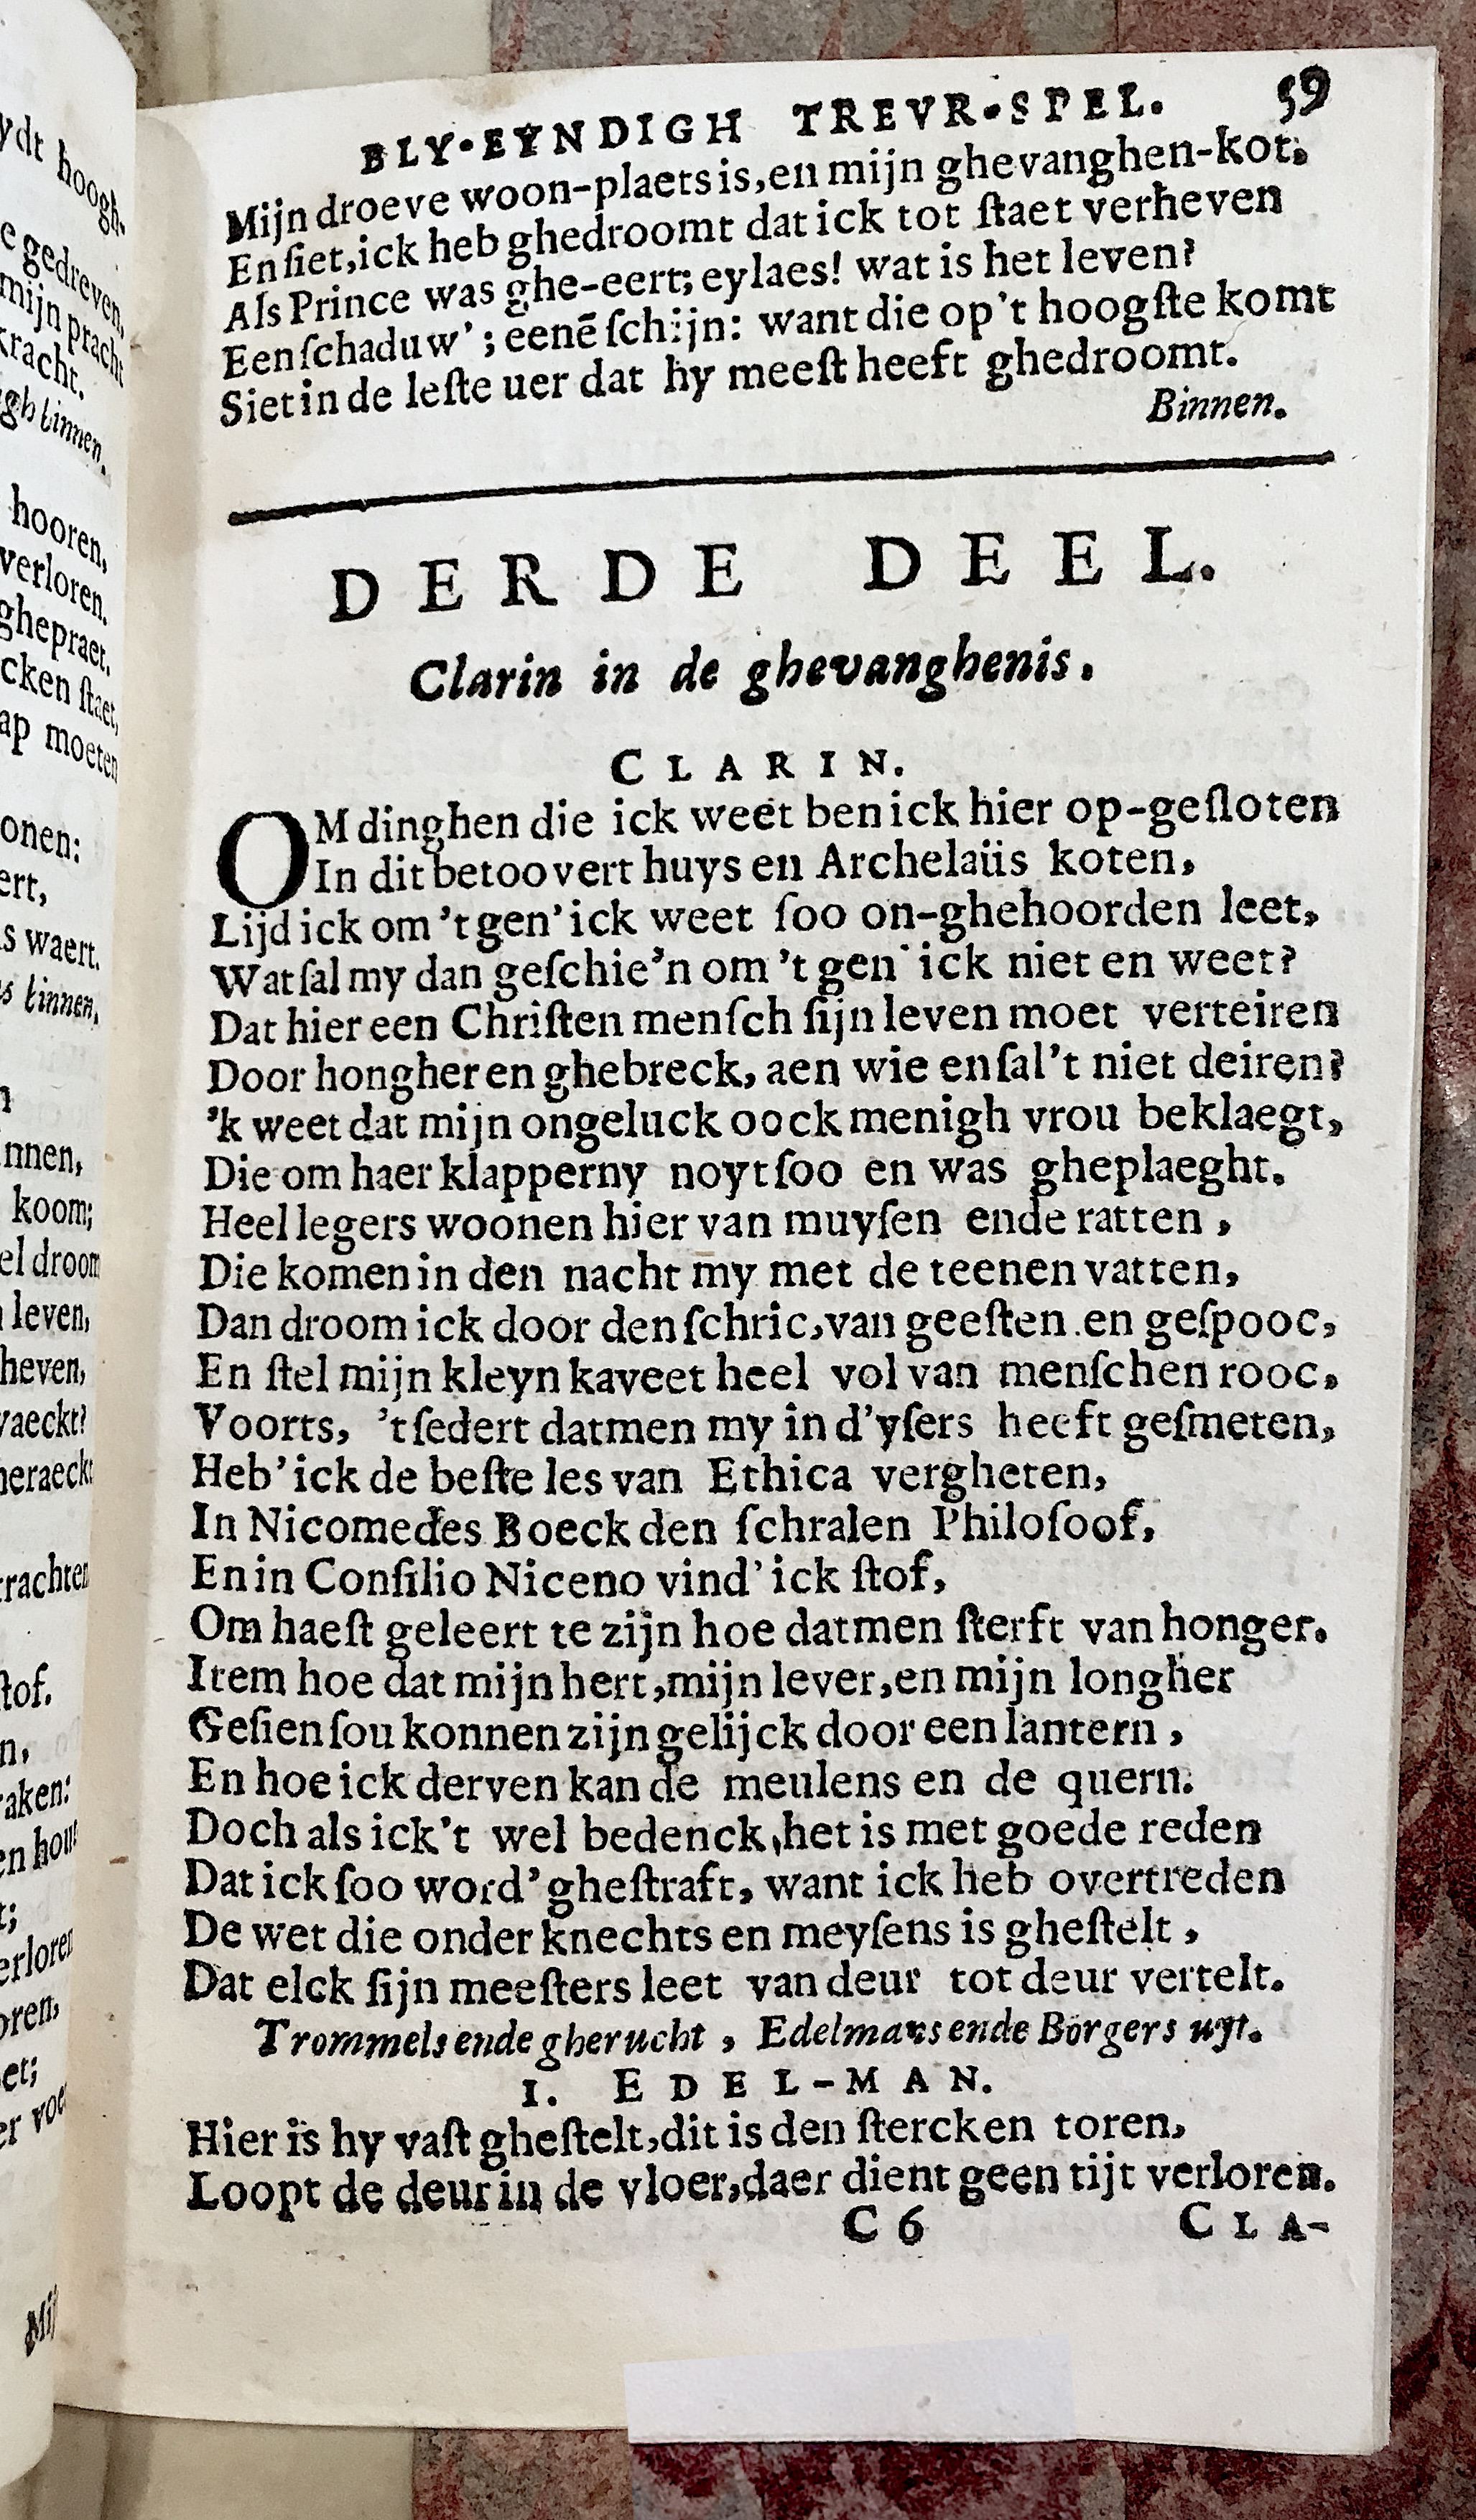 ydt hoogh,
e gedreven,
mijn pracht
kracht.
igh binnen.
hooren,
verloren.
ghepraet.
cken ſtaet,
ap moeten
onen:
ert,
s waert.
s binnen.
nnen,
koom;
el droom
leven,
heven,
vaeckt?
heraeckt
rachten
ſtof.
n,
raken:
en hou
t;
erloren
oren,
et;
er voe
Mij
BLY-EYNDIGH TREVR-SPEL. 59
Mijn droeve woon-plaets is, en mijn ghevanghen-kot.
En ſiet, ick heb ghedroomt dat ick tot ſtaet verheven
Als Prince was ghe-eert; eylaes! wat is het leven?
Een ſchaduw'; eenē ſchijn: want die op't hoogſte komt
Siet in de leſte uer dat hy meeſt heeft ghedroomt.
Binnen.
DERDE DEEL.
Clarin in de ghevanghenis.
CLARIN.
OM dinghen die ick weet ben ick hier op-geſloten
In dit betoovert huys en Archelaüs koten,
Lijd ick om 't gen' ick weet ſoo on-ghehoorden leet,
Wat ſal my dan geſchie'n om 't gen' ick niet en weet?
Dat hier een Chriſten menſch ſijn leven moet verteiren
Door hongher en ghebreck, aen wie en ſal't niet deiren?
'k weet dat mijn ongeluck oock menigh vrou beklaegt,
Die om haer klapperny noyt ſoo en was gheplaeght.
Heel legers woonen hier van muyſen ende ratten,
Die komen in den nacht my met de teenen vatten,
Dan droom ick door den ſchric, van geeſten en geſpooc,
En ſtel mijn kleyn kaveet heel vol van menſchen rooc.
Voorts, 't ſedert datmen my in d'yſers heeft geſmeten,
Heb' ick de beſte les van Ethica vergheten,
In Nicomedes Boeck den ſchralen Philoſoof,
En in Conſilio Niceno vind' ick ſtof,
Om haeſt geleert te zijn hoe datmen ſterft van honger.
Item hoe dat mijn hert, mijn lever, en mijn longher
Geſien ſou konnen zijn gelijck door een lantern,
En hoe ick derven kan de meulens en de quern.
Doch als ick't wel bedenck, het is met goede reden
Dat ick ſoo word' gheſtraft, want ick heb overtreden
De wet die onder knechts en meyſens is gheſtelt,
Dat elck ſijn meeſters leet van deur tot deur vertelt.
Trommels ende gherucht, Edelmans ende Borgers uyt.
1. EDEL-MAN.
Hier is hy vaſt gheſtelt, dit is den ſtercken toren,
Loopt de deur in de vloer, daer dient geen tijt verloren.
C 6 CLA-